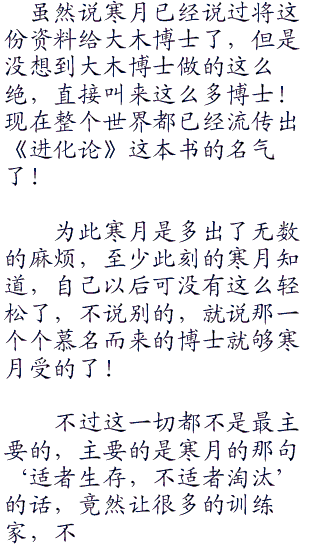 虽然说寒月已经说过将这
份资料给大木博士了，但是
没想到大木博士做的这么
绝，直接叫来这么多博士！
现在整个世界都已经流传出
《进化论》这本书的名气
了！
为此寒月是多出了无数
的麻烦，至少此刻的寒月知
道，自己以后可没有这么轻
松了，不说别的，就说那一
个个慕名而来的博士就够寒
月受的了！
不过这一切都不是最主
要的，主要的是寒月的那句
‘适者生存，不适者淘汰’
的话，竟然让很多的训练
家，不